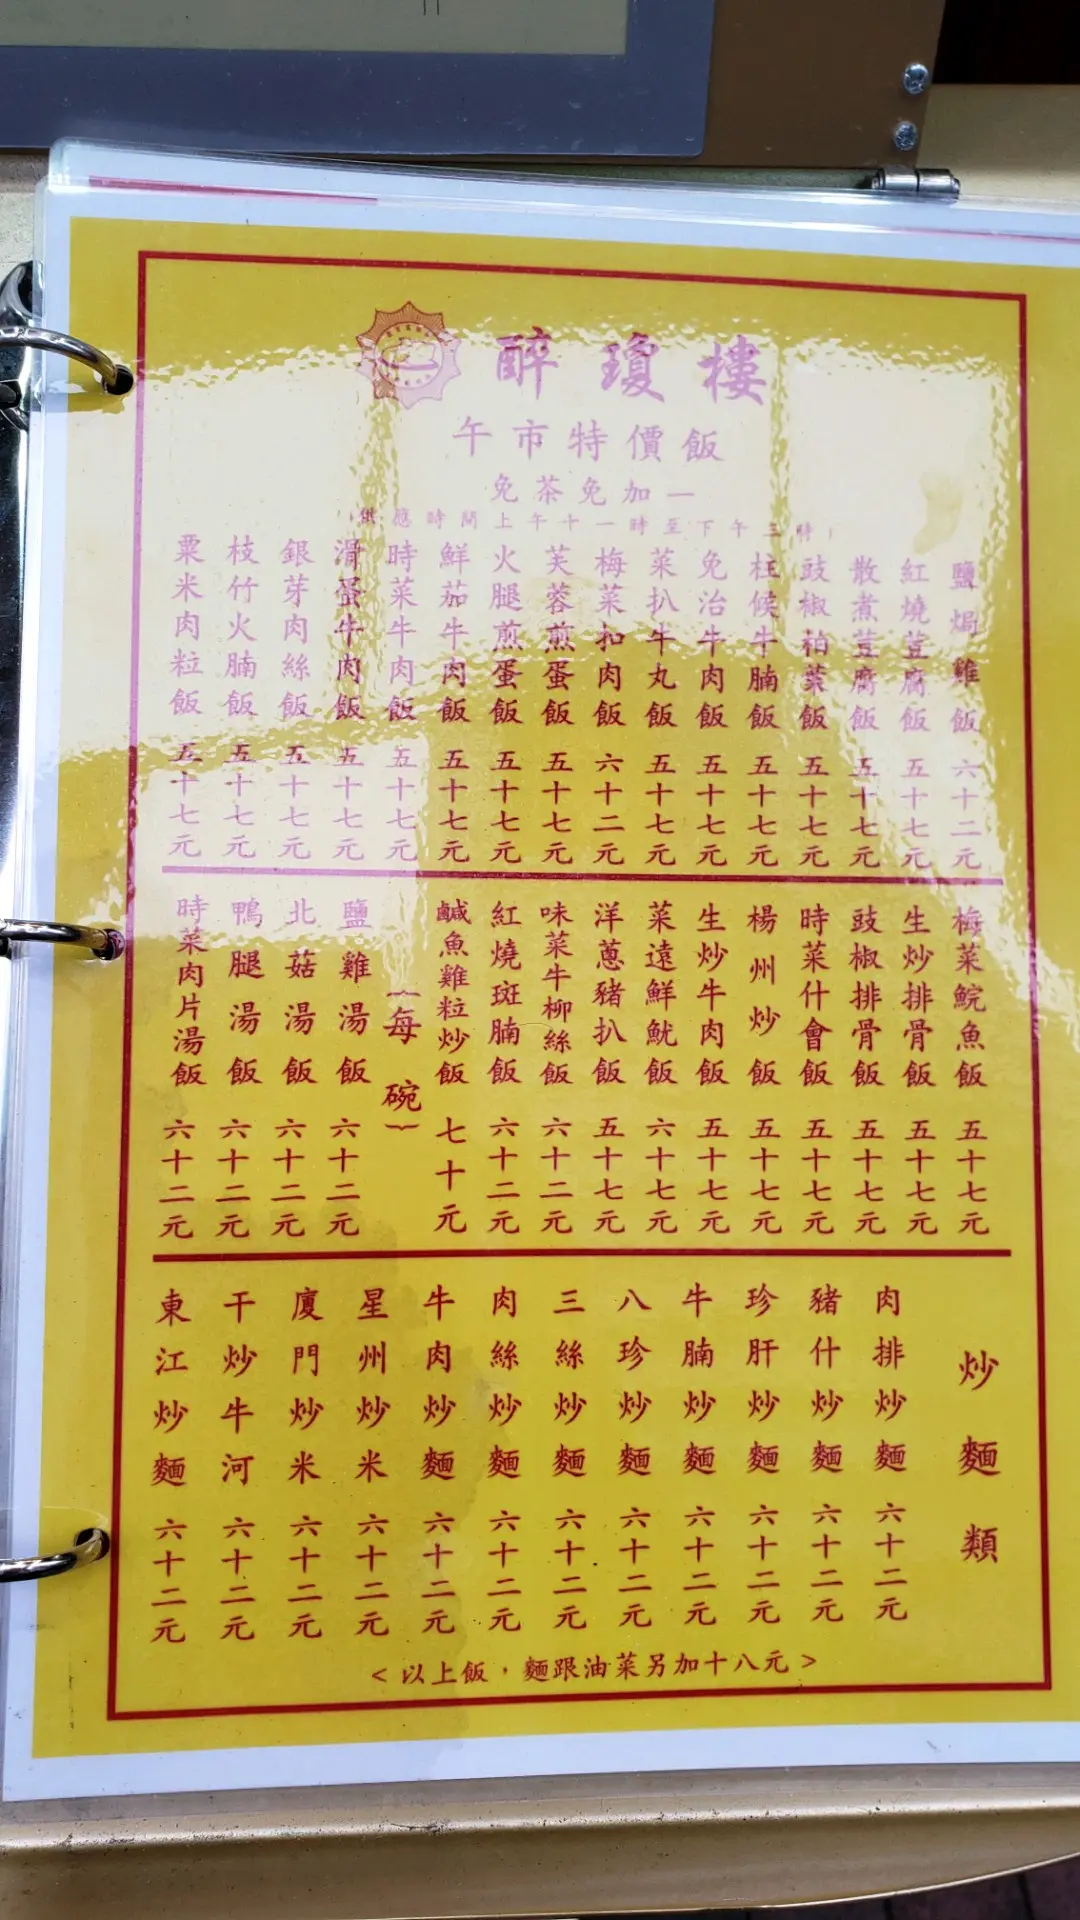 醉瓊樓
午市特價飯
免茶免加一
(供應時間上午十一時至下午三時)
鹽焗雞飯 六十二元
紅燒荳腐飯 五十七元
散煮荳腐飯 五十七元
豉椒柏葉飯 五十七元
柱候牛腩飯 五十七元
免治牛肉飯 五十七元
菜扒牛丸飯 五十七元
梅菜扣肉飯 六十二元
芙蓉煎蛋飯 五十七元
火腿煎蛋飯 五十七元
鮮茄牛肉飯 五十七元
時菜牛肉飯 五十七元
滑蛋牛肉飯 五十七元
銀芽肉絲飯 五十七元
枝竹火腩飯 五十七元
粟米肉粒飯 五十七元
梅菜鯇魚飯 五十七元
生炒排骨飯 五十七元
豉椒排骨飯 五十七元
時菜什會飯 五十七元
楊州炒飯 五十七元
生炒牛肉飯 五十七元
菜遠鮮魷飯 六十七元
洋蔥豬扒飯 五十七元
味菜牛柳絲飯 六十二元
紅燒斑腩飯 六十二元
鹹魚雞粒炒飯 七十元
(每碗)
鹽雞湯飯 六十二元
北菇湯飯 六十二元
鴨腿湯飯 六十二元
時菜肉片湯飯 六十二元
炒麵類
肉排炒麵 六十二元
豬什炒麵 六十二元
珍肝炒麵 六十二元
牛腩炒麵 六十二元
八珍炒麵 六十二元
三絲炒麵 六十二元
肉絲炒麵 六十二元
牛肉炒麵 六十二元
星州炒米 六十二元
廈門炒米 六十二元
干炒牛河 六十二元
東江炒麵 六十二元
<以上飯，麵跟油菜另加十八元>